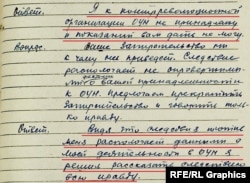 Ответ: Я к контрреволюционной
организации ОУН не принадлежу
и показаний вам дать не могу.
Вопрос: Ваше запирательство ни
к чему не приведет. Следствие
располагает
вашей принадлежности
к ОУН. Предлагаем прекратить
запирательство и говорить толь-
ко правду.
Ответ: Видя что следствие против
меня располагает данными о
моей деятельности в ОУН я
решил рассказать следствию
всю правду.
© RFE/RL Graphics